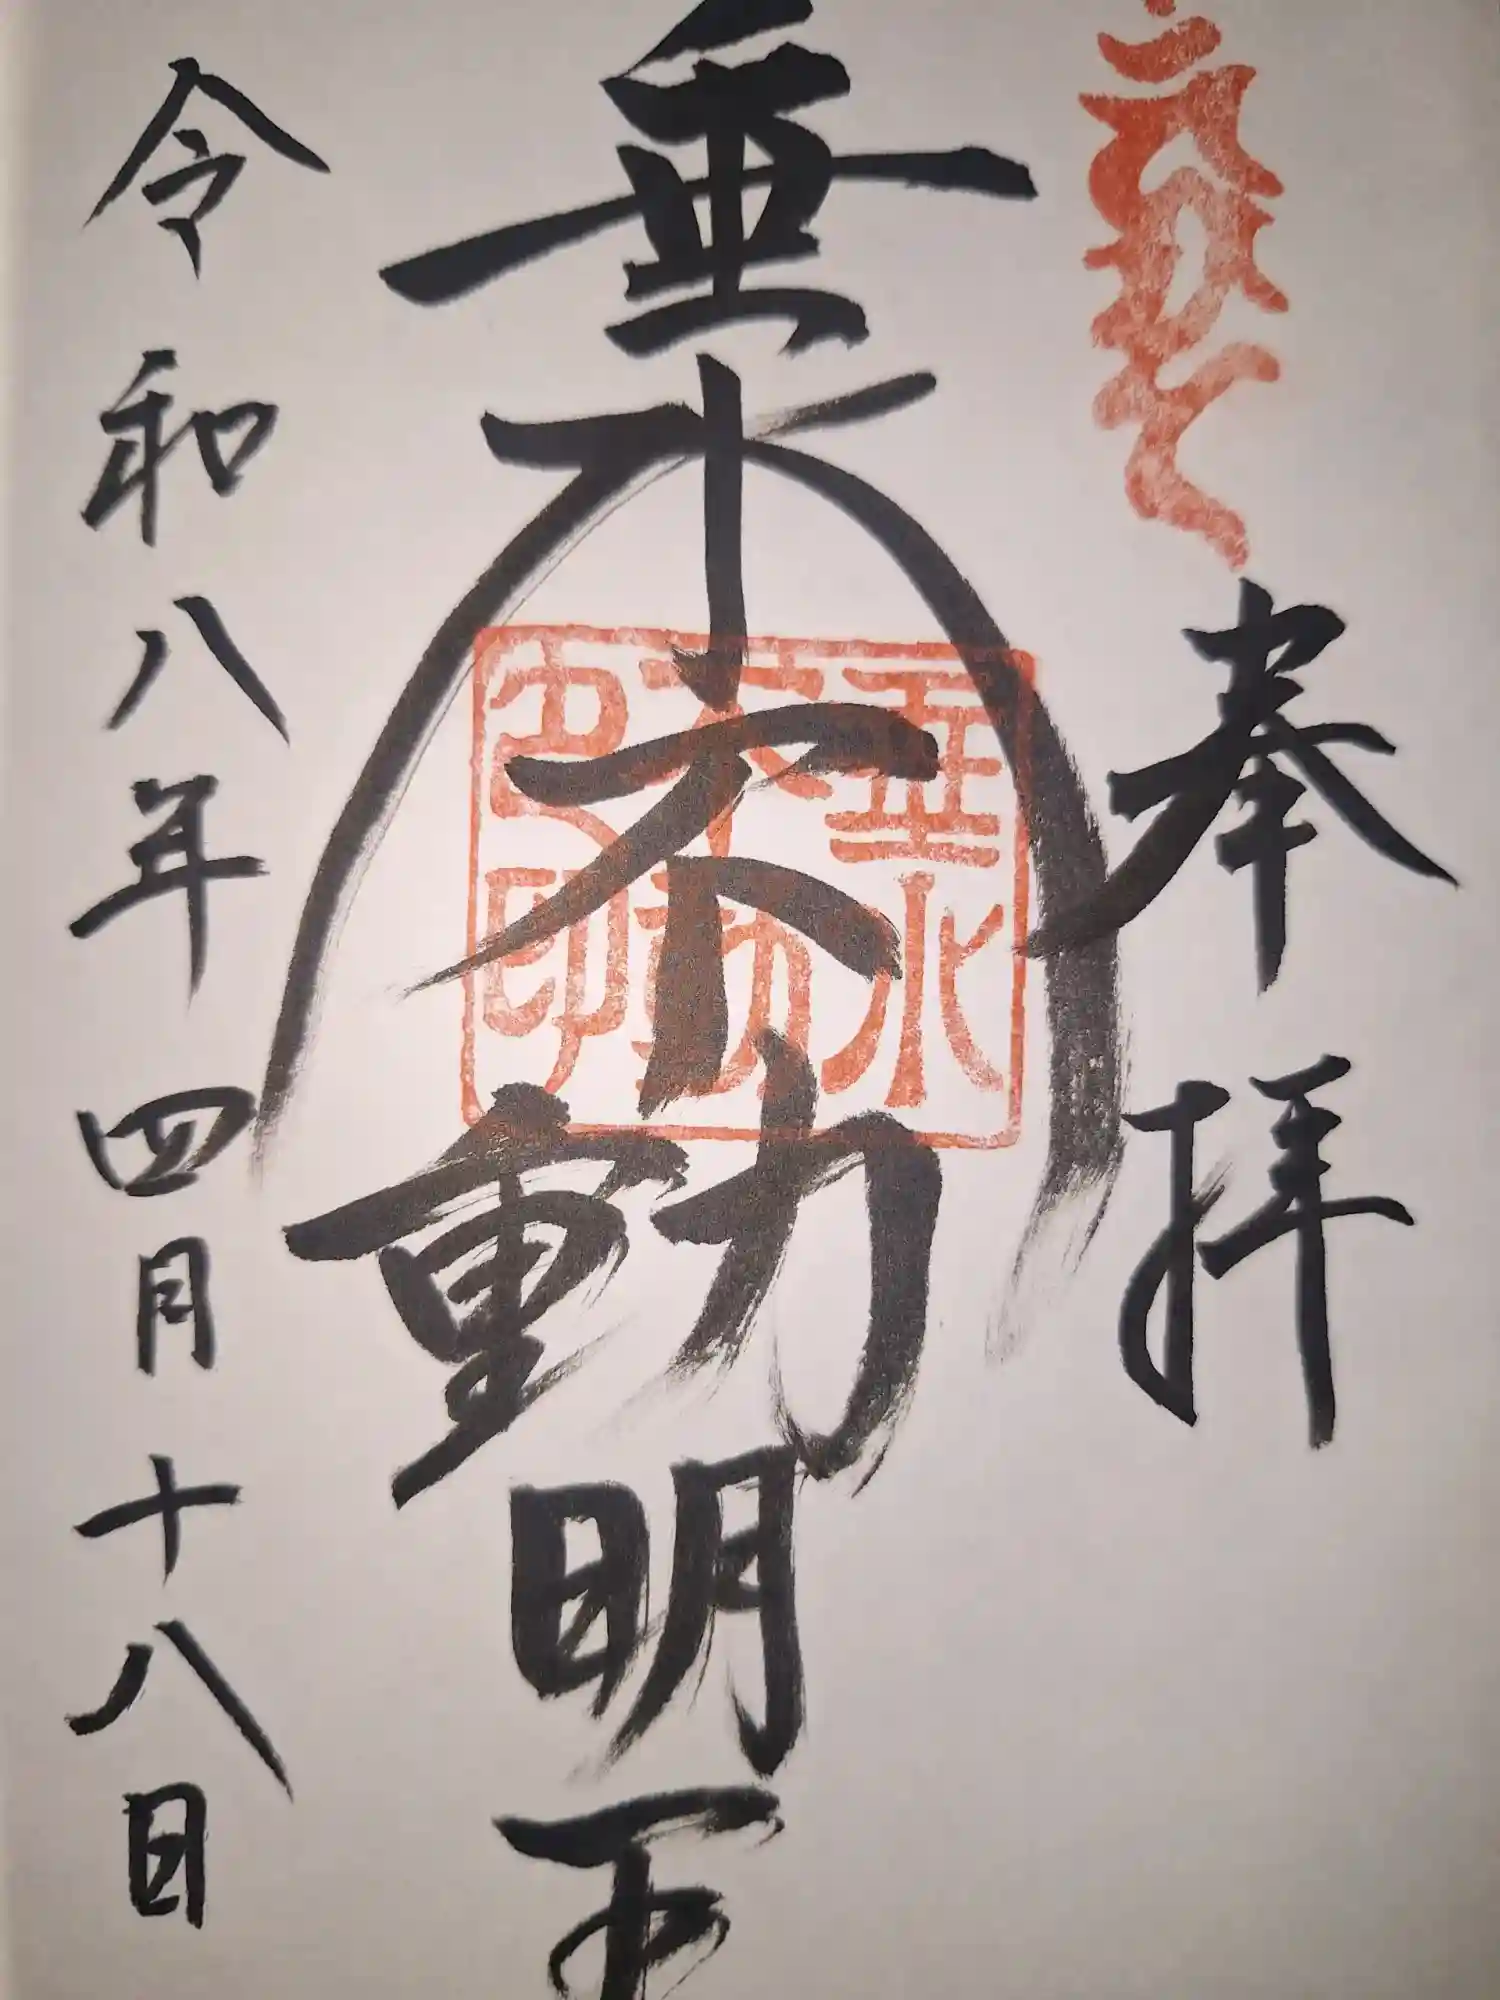 奉拝
垂水不動明王
垂水
不動
之印
令和八年四月十八日